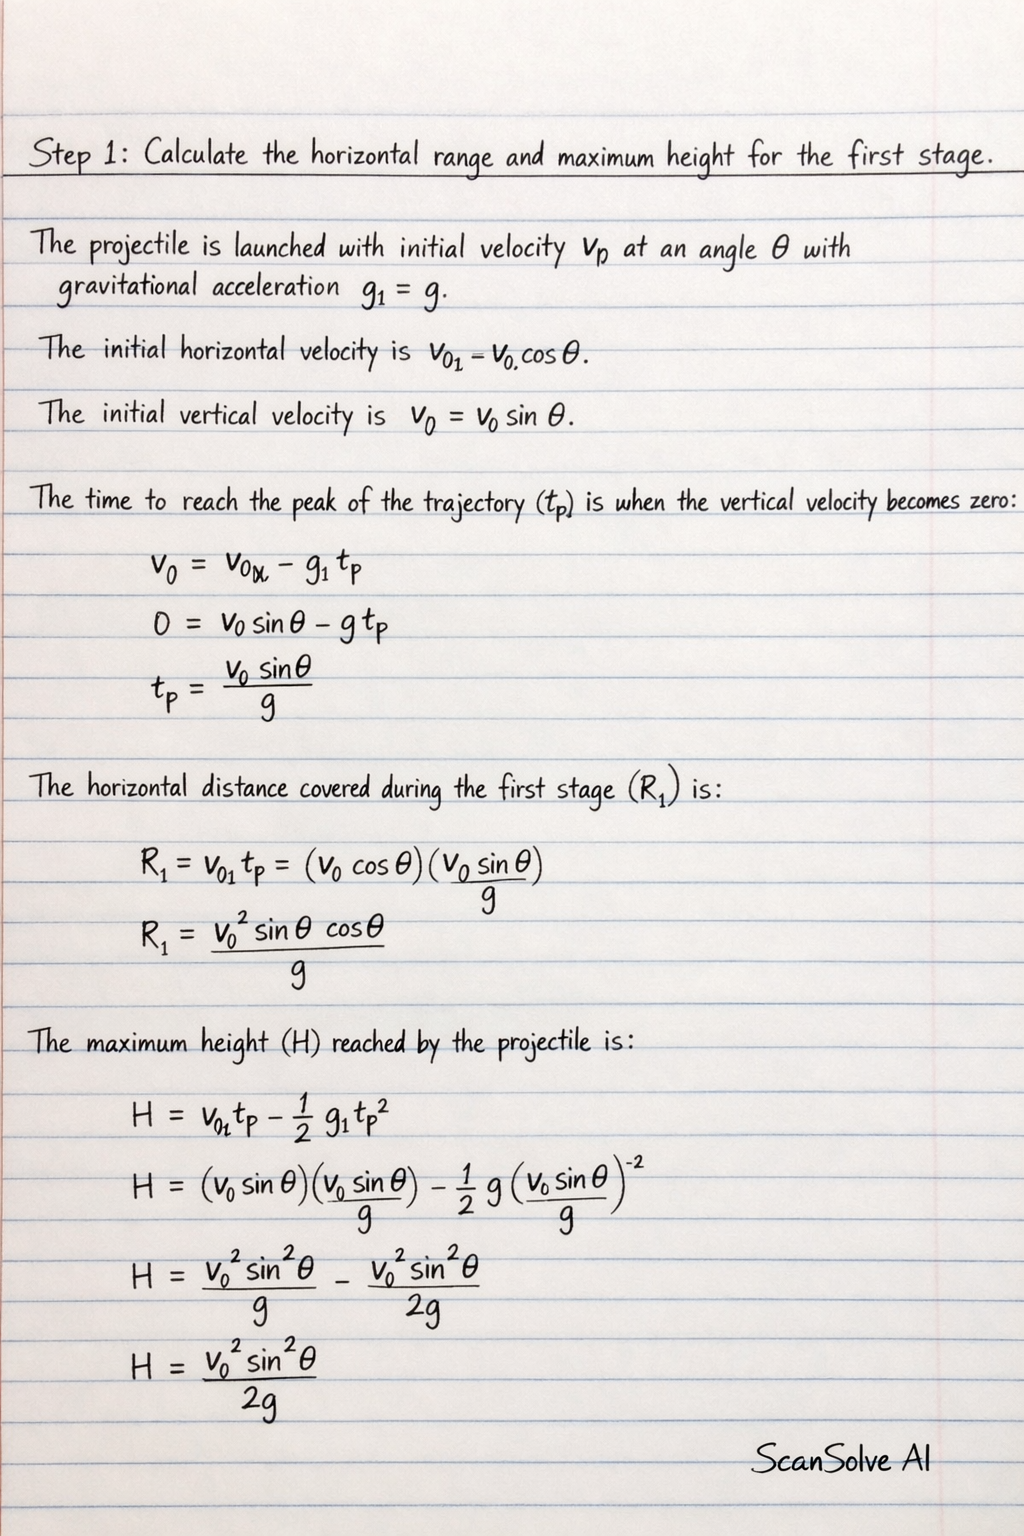 Step 1: Calculate the horizontal range and maximum height for the first stage.
The projectile is launched with initial velocity vₚ at an angle θ with
gravitational acceleration g₁ = g.
The initial horizontal velocity is v₀₁ – v₀. cos θ.
The initial vertical velocity is v₀ = v₀ sin θ.
The time to reach the peak of the trajectory (tₚ) is when the vertical velocity becomes zero:
v₀ = v₀ₓ – g₁ tₚ
0 = v₀ sin θ – g tₚ
tₚ = v₀ sin θ / g
The horizontal distance covered during the first stage (R₁) is:
R₁ = v₀₁ tₚ = (v₀ cos θ)(v₀ sin θ / g)
R₁ = v₀² sin θ cos θ / g
The maximum height (H) reached by the projectile is:
H = v₀₁ tₚ – 1/2 g₁ tₚ²
H = (v₀ sin θ)(v₀ sin θ / g) – 1/2 g (v₀ sin θ / g)⁻²
H = v₀² sin² θ / g – v₀² sin² θ / 2g
H = v₀² sin² θ / 2g
ScanSolve AI